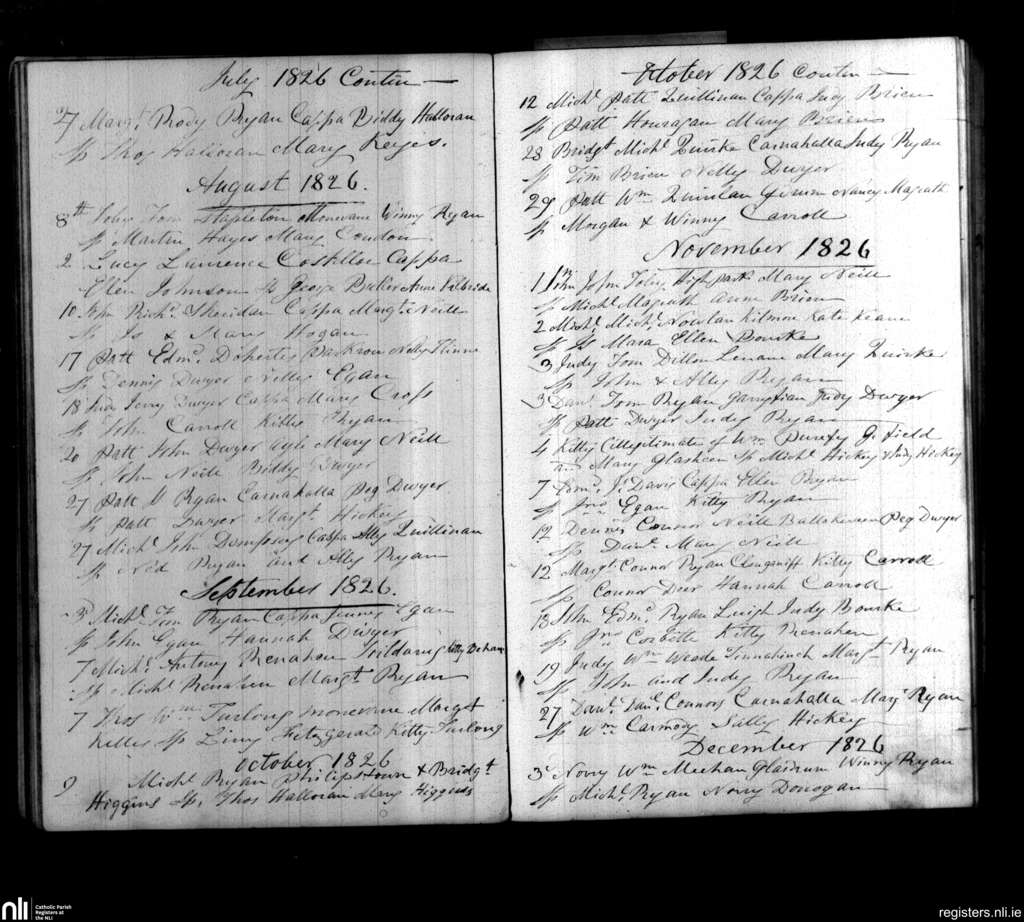 July 1826 Contin —
27 Margt. Rody Ryan Cappa Biddy Halloran
Sp Thos Halloran Mary Keyes.
August 1826.
8th John Tom Stapleton Monevane Winny Ryan
Sp Martin Hayes Mary Condon
2 Lucy Laurence Costlloe Cappa
Ellen Johnson Sp George Baker Anne Kilbride
10 Richd. Sheridan Cappa Margt. Neill
Sp Js & Mary Hogan
17 Patt Edmd. Doherty Nelly
Sp Dennis Dwyer Nelly Egan
18 Judy Jerry Dwyer Cappa Mary Cross
Sp John Carroll Kitty Ryan
20 Patt John Dwyer Mary Neill
Sp John Neill Biddy Dwyer
27 Patt Ryan Carnahalla Peg Dwyer
Sp Patt Dwyer Margt. Hickey
27 Michl. John Dempsey Cappa Ally Quillinan
Sp Ned Ryan and Ally Ryan
September 1826.
3 Michl. Tom Ryan Cappa Egan
Sp John Egan Hannah Dwyer
7 Michl. Antony Renahan Kitty
Sp Michl. Renahan Margt. Ryan
7 Thos Wm. Furlong Monevane Margt
Sp Fitzgerald Kitty Furlong
October 1826
9 Michl. Ryan Philipstown & Bridgt
Higgins Sp. Thos Halloran Mary Higgins
October 1826 Contin —
12 Michl. Patt Quillinan Cappa Judy Brien
Sp Patt Houragan Mary Brien
28 Bridgt Michl. Quirke Carnahalla Judy Ryan
Sp Tim Brien Nelly Dwyer
29 Patt Wm Quinlan Nancy Magrath
Sp Morgan & Winny Carroll
November 1826
1 John Highpark Mary Neill
Sp Michl. Magrath Anne Brien
2 Michl. Michl. Nowlan Kilmore Kate Keane
Sp Js Mara Ellen Bourke
3 Judy Tom Dillon Mary Quirke
Sp John & Ally Ryan
3 Danl. Tom Ryan Judy Dwyer
Sp Patt Dwyer Judy Ryan
4 Kitty illegitimate of Wm Purefy G. field
Mary Glasheen Sp Michl. Hickey & Judy Hickey
7 Edmd. Davis Cappa Ellen Ryan
Sp Jno Egan Kitty Ryan
12 Dennis Connor Neill Peg Dwyer
Sp Danl. Mary Neill
12 Margt. Connor Ryan Kitty Carroll
Sp Connor Deer Hannah Carroll
13 John Edmd. Ryan Judy Bourke
Sp Jno Corbett Kitty Renahan
19 Judy Wm Weade Tinnahinch Margt Ryan
Sp John and Judy Ryan
27 Danl. Danl. Connors Carnahalla Mary Ryan
Sp Wm Carmody Sally Hickey
December 1826
3 Norry Wm Meehan Winny Ryan
Sp Michl. Ryan Norry Donogan
nli Catholic Parish
Registers at
the NLI
registers.nli.ie